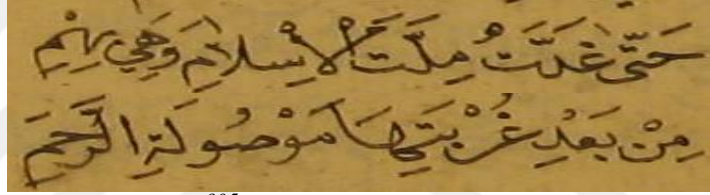 حَتَّى غَدَتْ مِلَّتُ الْاِسْلَامِ وَهِيَ بِهِمِ
مِنْ بَعْدِ غُرْبَتِهَا مَوْصُولَةِ الرَّحِمِ